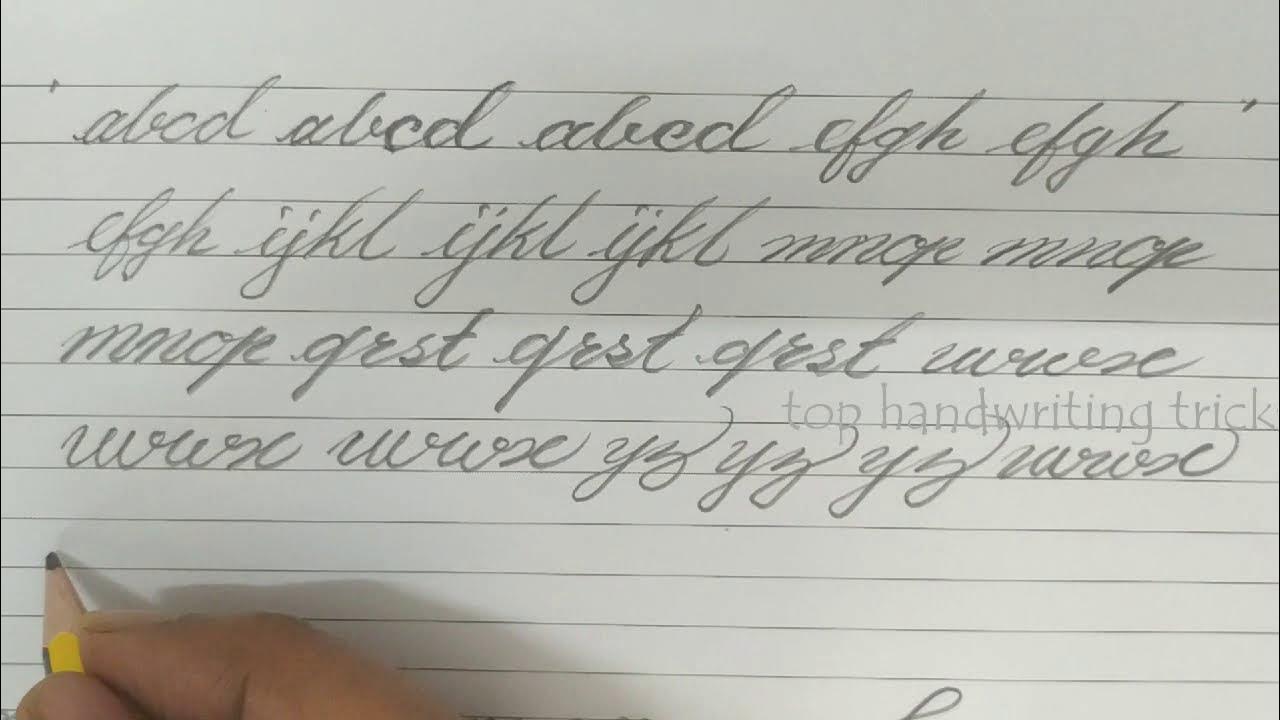 abcd abcd abcd efgh efgh
efgh ijkl ijkl ijkl mnop mnop
mnop qrst qrst qrst uvwx
top handwriting trick
uvwx uvwx yz yz yz uvwx